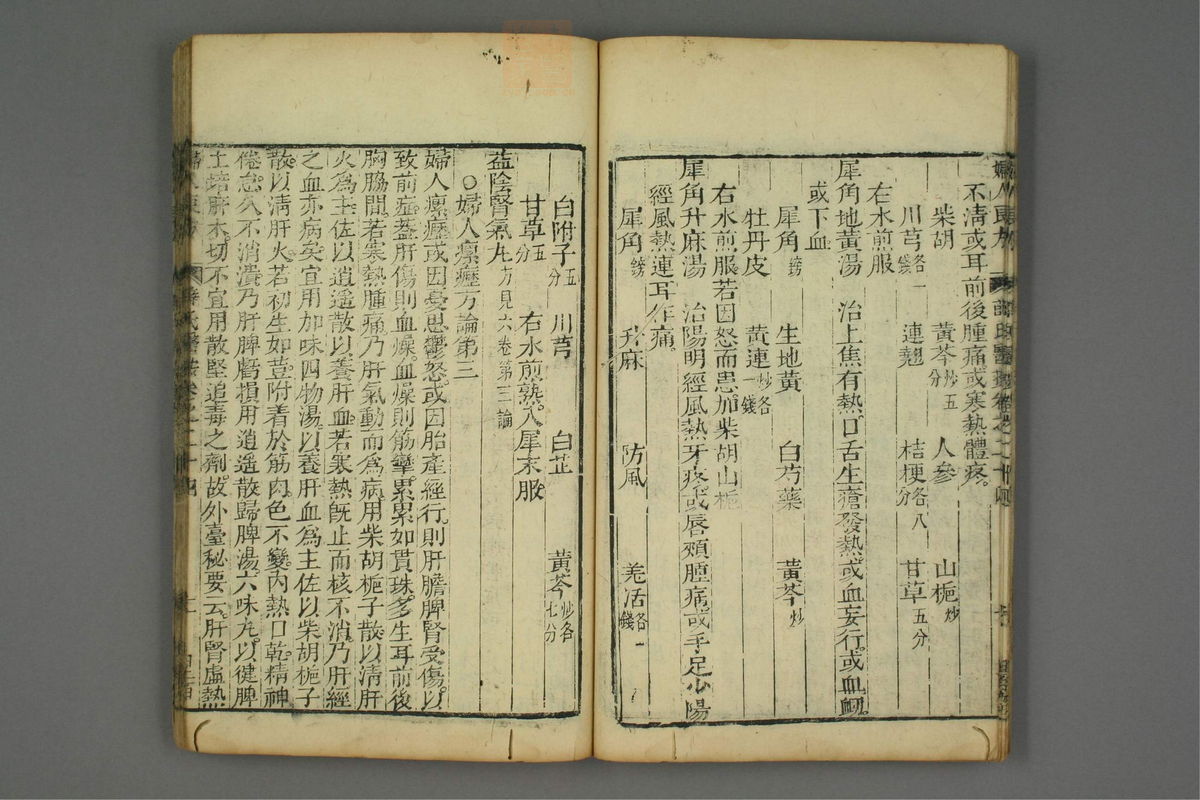 不淸或耳前後腫痛或寒熱體疼
柴胡 黃芩炒五分 人參 山梔炒
川芎各一錢 連翹 桔梗各八分 甘草五分
右水煎服
犀角地黃湯 治上焦有熱口舌生瘡發熱或血妄行或血衂
或下血
犀角鎊 生地黃 白芍藥 黃芩炒
牡丹皮 黃連炒各一錢
右水煎服若因怒而患加柴胡山梔
犀角升麻湯 治陽明經風熱牙疼或唇頰腫痛或手足少陽
經風熱連耳作痛
犀角鎊 升麻 防風 羌活各一錢
白附子五分 川芎 白芷 黃芩炒各七分
甘草五分 右水煎熟入犀末服
益陰腎氣丸方見六卷第三論
○婦人瘰癧方論第三
婦人瘰癧或因憂思鬱怒或因胎產經行則肝膽脾腎受傷以
致前症蓋肝傷則血燥血燥則筋攣累累如貫珠多生耳前後
胸脇間若寒熱腫痛乃肝氣動而爲病用柴胡梔子散以清肝
火爲主佐以逍遥散以養肝血若寒熱旣止而核不消乃肝經
之血亦病矣宜用加味四物湯以養肝血爲主佐以柴胡梔子
散以清肝火若初生如荳附着於筋肉色不變內熱口乾精神
倦怠久不消潰乃肝脾虧損用逍遥散歸脾湯六味丸以健脾
土培肝木切不宜用散堅追毒之劑故外臺秘要云肝腎虛熱